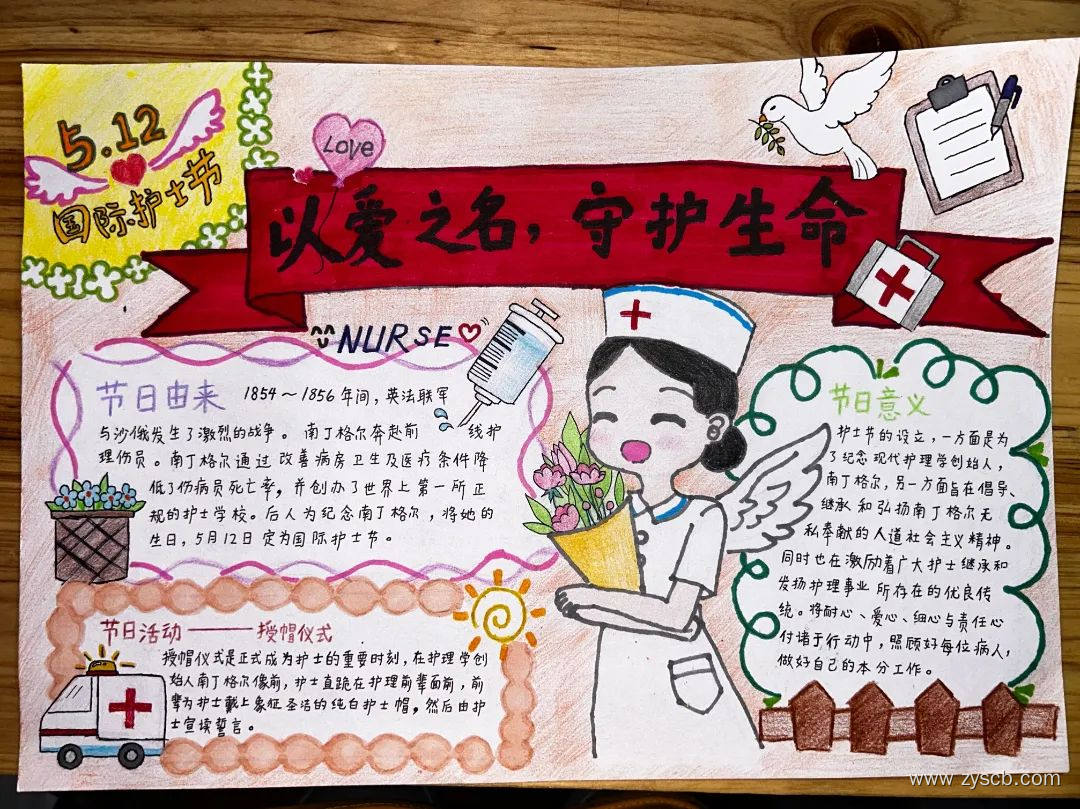 5.12
国际护士节
Love
以爱之名，守护生命
NURSE
节日由来 1854～1856年间，英法联军
与沙俄发生了激烈的战争。南丁格尔奔赴前线护
理伤员。南丁格尔通过改善病房卫生及医疗条件降
低了伤病员死亡率，并创办了世界上第一所正
规的护士学校。后人为纪念南丁格尔，将她的
生日，5月12日定为国际护士节。
节日意义
护士节的设立，一方面是为
了纪念现代护理学创始人，
南丁格尔，另一方面旨在倡导、
继承和弘扬南丁格尔无
私奉献的人道社会主义精神。
同时也在激励着广大护士继承和
发扬护理事业所存在的优良传
统。将耐心、爱心、细心与责任心
付诸于行动中，照顾好每位病人，
做好自己的本分工作。
节日活动——授帽仪式
授帽仪式是正式成为护士的重要时刻，在护理学创
始人南丁格尔像前，护士直跪在护理前辈面前，前
辈为护士戴上象征圣洁的纯白护士帽，然后由护
士宣读誓言。
www.zyscb.com